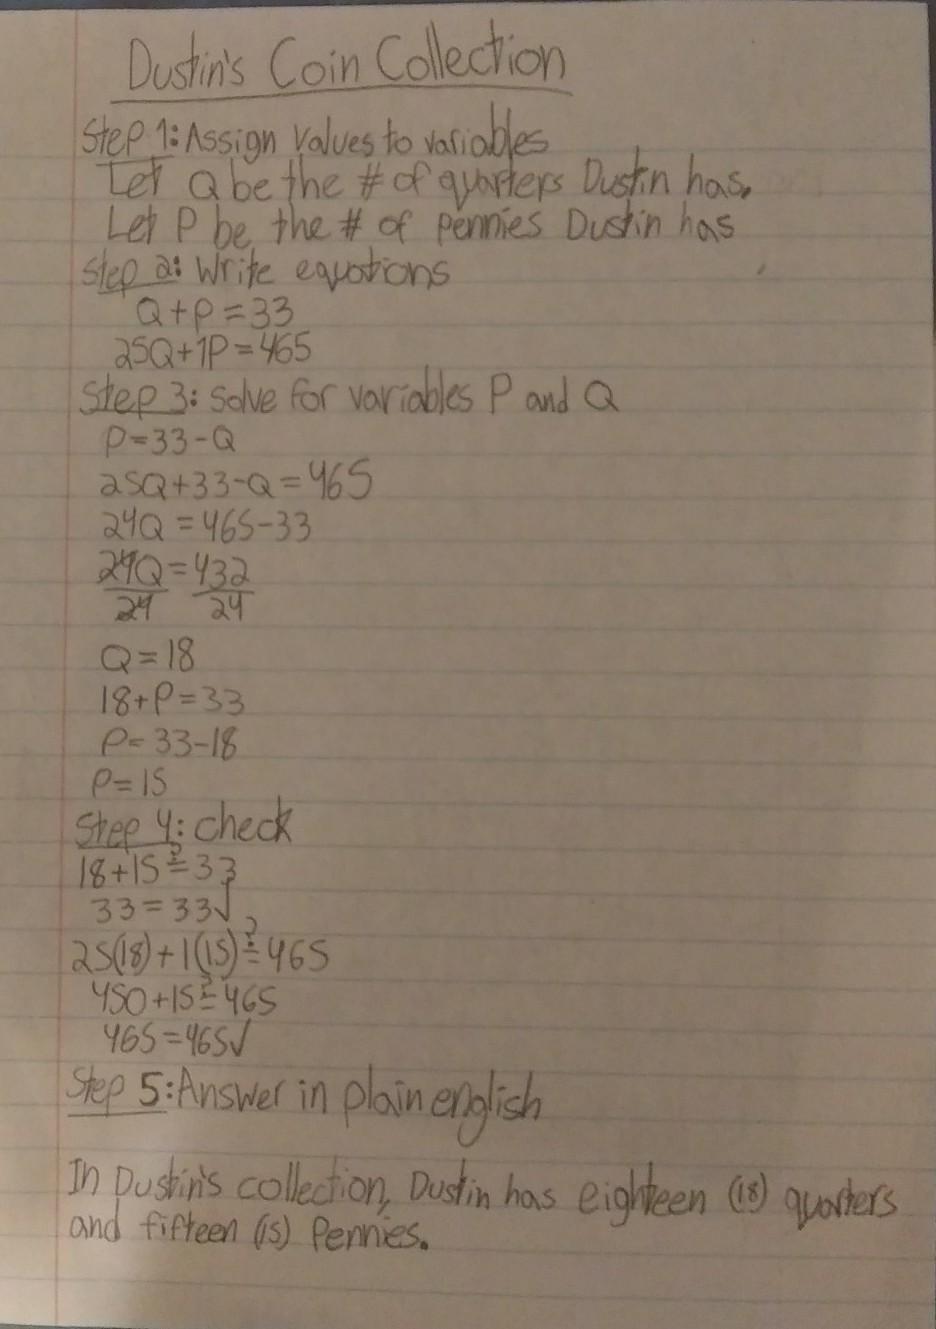 Dustin's Coin Collection
Step 1: Assign values to variables
Let Q be the # of quarters Dustin has.
Let P be the # of pennies Dustin has
Step 2: Write equations
Q+P=33
25Q+1P=465
Step 3: Solve for variables P and Q
P=33-Q
25Q+33-Q=465
24Q=465-33
24Q=432
24 24
Q=18
18+P=33
P=33-18
P=15
Step 4: check
18+15≟33
33=33√
25(18)+1(15)≟465
450+15≟465
465=465√
Step 5: Answer in plain english
In Dustin's collection, Dustin has eighteen (18) quarters
and fifteen (15) Pennies.